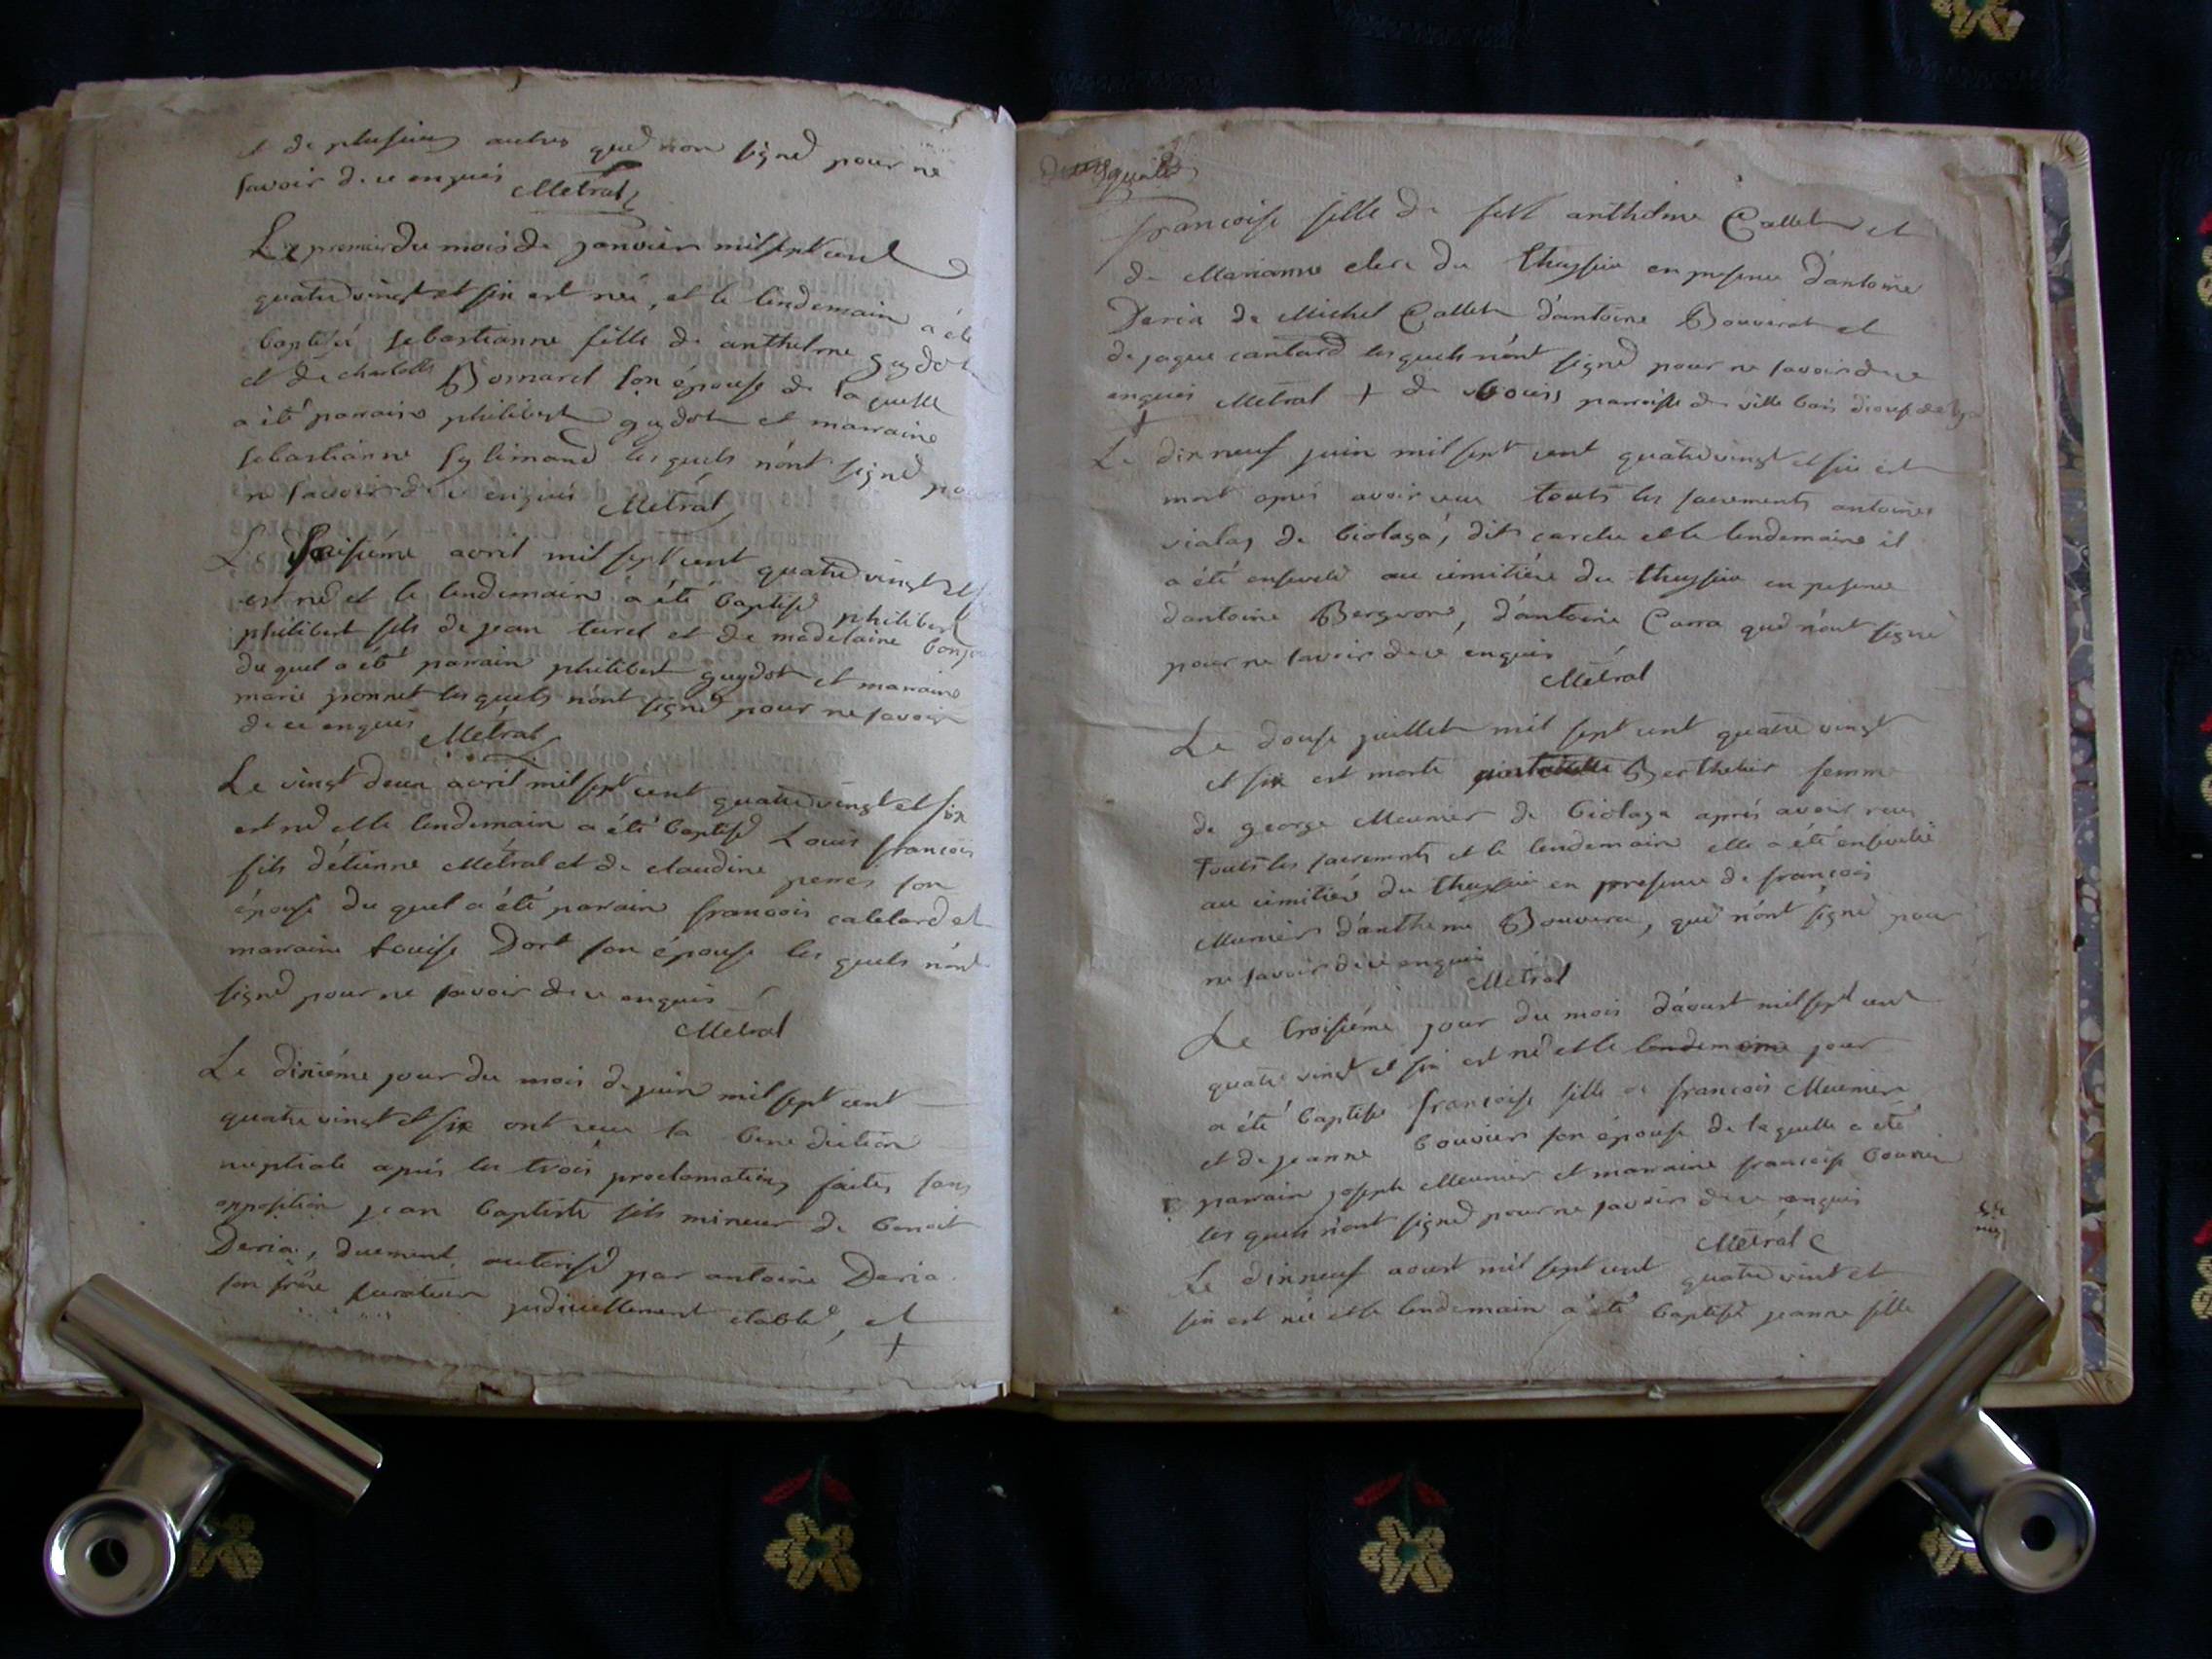 et de plusieurs autres qui non signé pour ne
savoir de ce enquis Métral
Le premier du mois de janvier mil sept cent
quatre vingt et six est née, et le lendemain a été
baptisée sebastianne fille de anthelme guydot
et de charlotte Bornarel son épouse de laquelle
a été parrain philibert guydot et marraine
sebastianne les quels n'ont signé pour
ne savoir de ce enquis Métral
Le avril mil sept cent quatre vingt et
est né et le lendemain a été baptisé philibert
philibert fils de jean turel et de madelaine
du quel a été parrain philibert guydot et marraine
marie les quels n'ont signé pour ne savoir
de ce enquis Métral
Le vingt deux avril mil sept cent quatre vingt et six
est né et le lendemain a été baptisé Louis françois
fils d'étienne Métral et de claudine son
épouse du quel a été parrain françois et
marraine Louise Dort son épouse les quels n'ont
signé pour ne savoir de ce enquis
Métral
Le dixiéme jour du mois de juin mil sept cent
quatre vingt et six ont recu la benediction
nuptiale aprés les trois proclamations faites sans
opposition jean baptiste fils mineur de benoit
Deria, duement autorisé par antoine Deria
son frére curateur judiciellement établi, et
+
françoise fille de feu anthelme Callet et
de Marianne clerc du thuyseu en presence d'antoine
Deria de Michel Callet d'antoine Bouverat et
de jaque cantard les quels n'ont signé pour ne savoir de ce
enquis Métral + de parroisse de ville bois
Le dix neuf juin mil sept cent quatre vingt et six est
mort aprés avoir recu touts les sacrements antoine
vialas de biolaga, dit et le lendemain il
a été enseveli au cimitiére du thuyseu en presence
d'antoine Bergeron, d'antoine Carra qui n'ont signé
pour ne savoir de ce enquis
Métral
Le douse juillet mil sept cent quatre vingt
et six est morte Berthelier femme
de george Meunier de biolaga aprés avoir recu
touts les sacrements et le lendemain elle a été enseveli
au cimitiére du thuyseu en presence de françois
Munier d'anthelme Bouvera, qui n'ont signé pour
ne savoir de ce enquis
Métral
Le troisiéme jour du mois d'aoust mil sept cent
quatre vint et six est né et le lendemaine jour
a été baptise françoise fille de françois Meunier
et de jeanne bouvier son épouse de laquelle a été
parrain joseph Meunier et marraine françoise bouvier
les quels n'ont signé pour ne savoir de ce enquis
Métral
Le dix neuf aoust mil sept cent quatre vint et
six est née et le lendemain a été baptisé jeanne fille